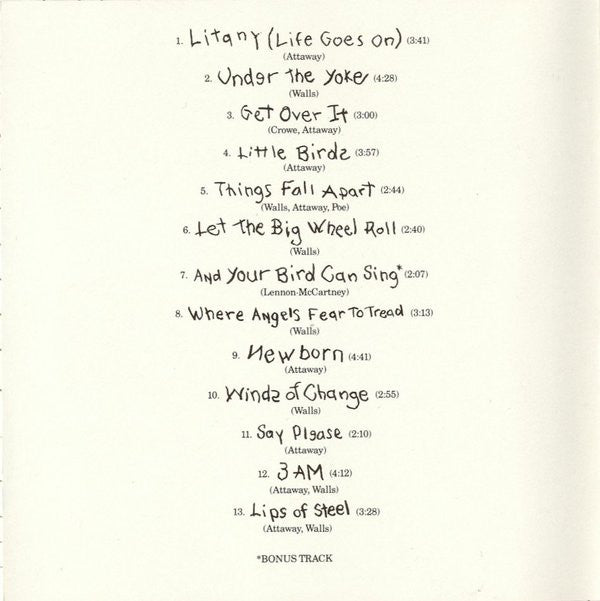 1. Litany (Life Goes On) (3:41)
(Attaway)
2. Under the Yoke (4:28)
(Walls)
3. Get Over It (3:00)
(Crowe, Attaway)
4. Little Birds (3:57)
(Attaway)
5. Things Fall Apart (2:44)
(Walls, Attaway, Poe)
6. Let The Big Wheel Roll (2:40)
(Walls)
7. And Your Bird Can Sing* (2:07)
(Lennon-McCartney)
8. Where Angels Fear To Tread (3:13)
(Walls)
9. Newborn (4:41)
(Attaway)
10. Winds of Change (2:55)
(Walls)
11. Say Please (2:10)
(Attaway)
12. 3 AM (4:12)
(Attaway, Walls)
13. Lips of Steel (3:28)
(Attaway, Walls)
*BONUS TRACK